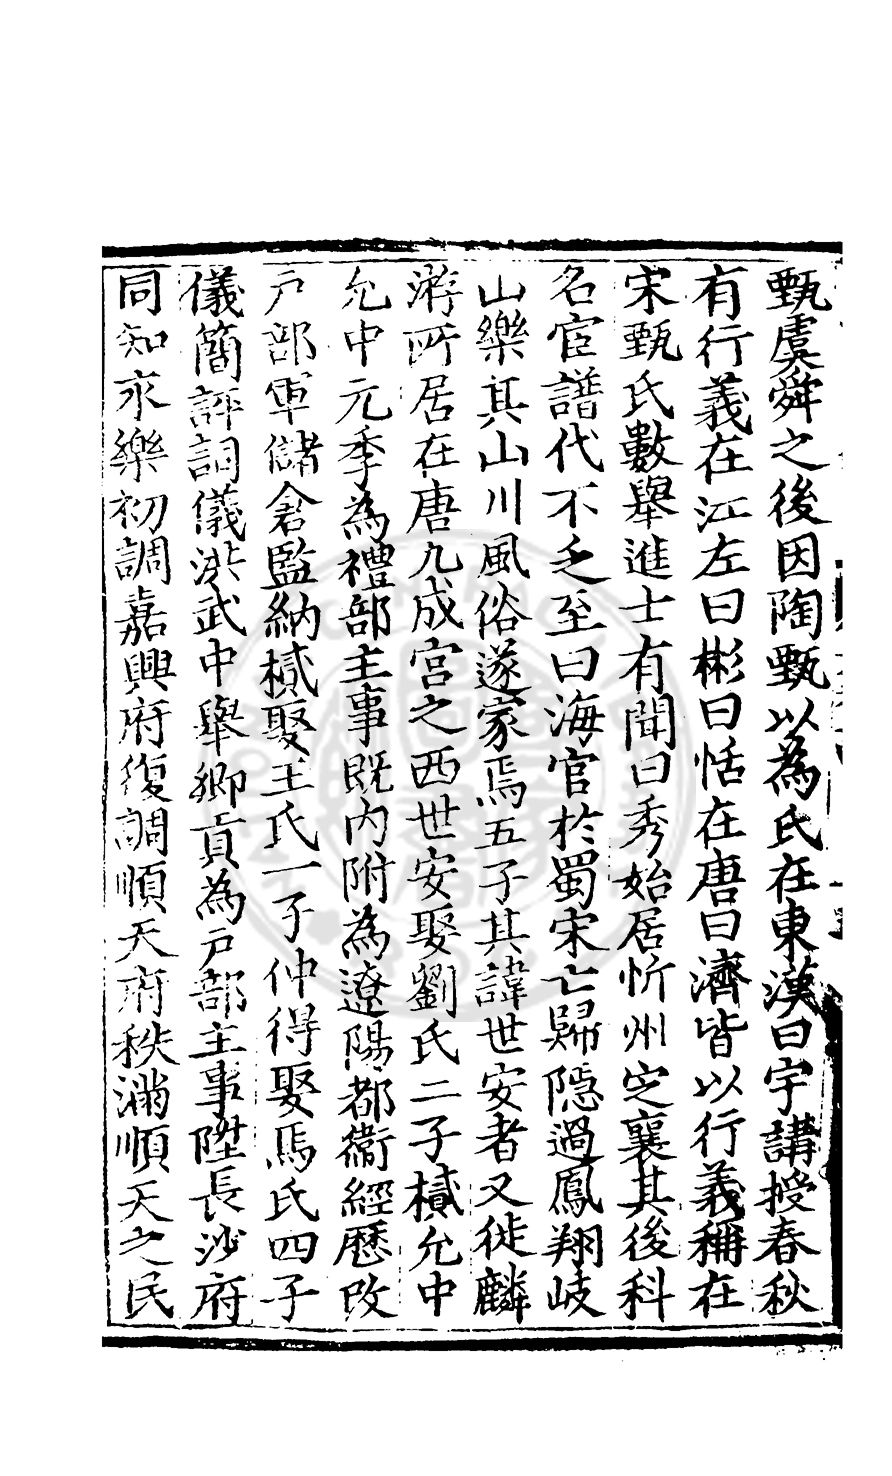 甄虞舜之後因陶甄以為氏在東漢曰宇講授春秋
有行義在江左曰彬曰恬在唐曰濟皆以行義稱在
宋甄氏數舉進士有聞曰秀始居忻州定襄其後科
名宦譜代不乏至曰海官於蜀宋亡歸隠過鳳翔岐
山樂其山川風俗遂家焉五子其諱世安者又徙麟
游所居在唐九成宮之西世安娶劉氏二子樻允中
允中元季為禮部主事既内附為遼陽都衞經歷改
户部軍儲倉監納樻娶王氏一子仲得娶馬氏四子
儀簡評詞儀洪武中舉鄉貢為户部主事陞長沙府
同知永樂初調嘉興府復調順天府秩滿順天之民